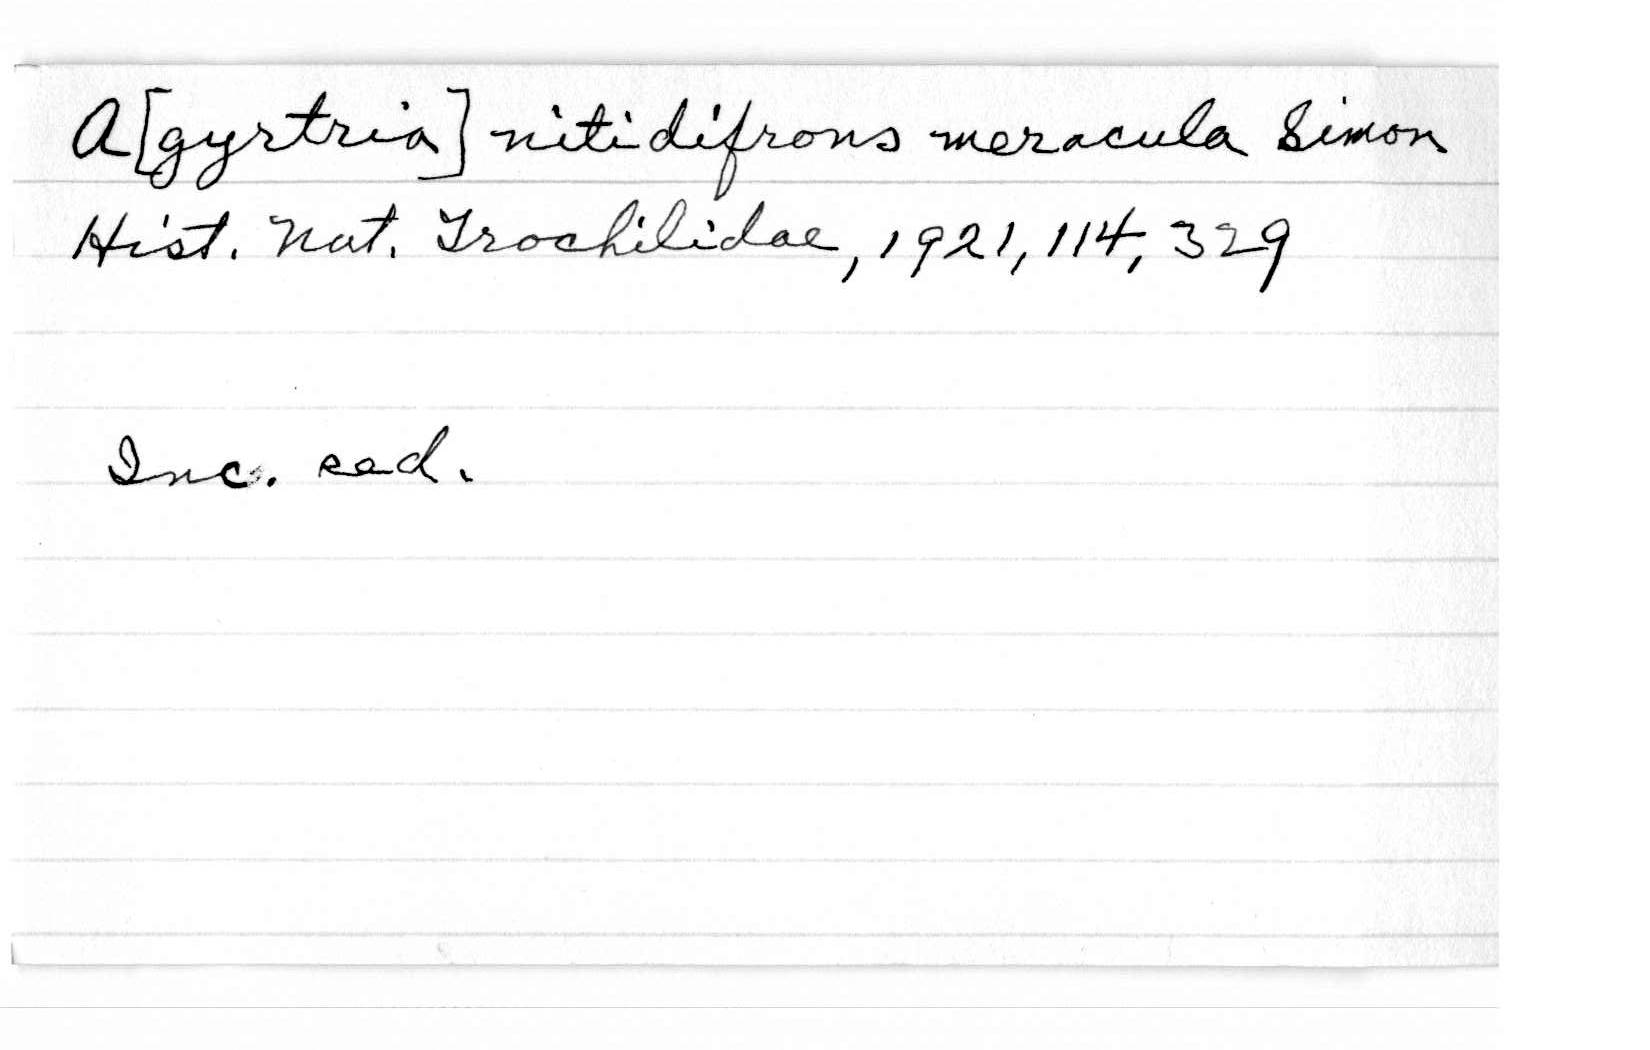 A[gyrtria] nitidifrons meracula Simon
Hist. Nat. Trochilidae, 1921, 114, 329
Inc. sed.